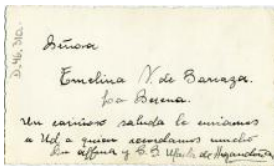 D.46.310.
Señora
Emelina V. de Barraza.
La Serena.
Un cariñoso saludo le enviamos
a Ud. a quien recordamos mucho
Su affma y S. S. de